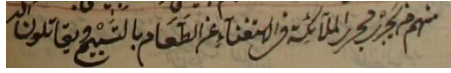 منهم من يجرى مجرى الملائكة فى الاستغناء عن الطعام بالتسبيح ويقاتلون